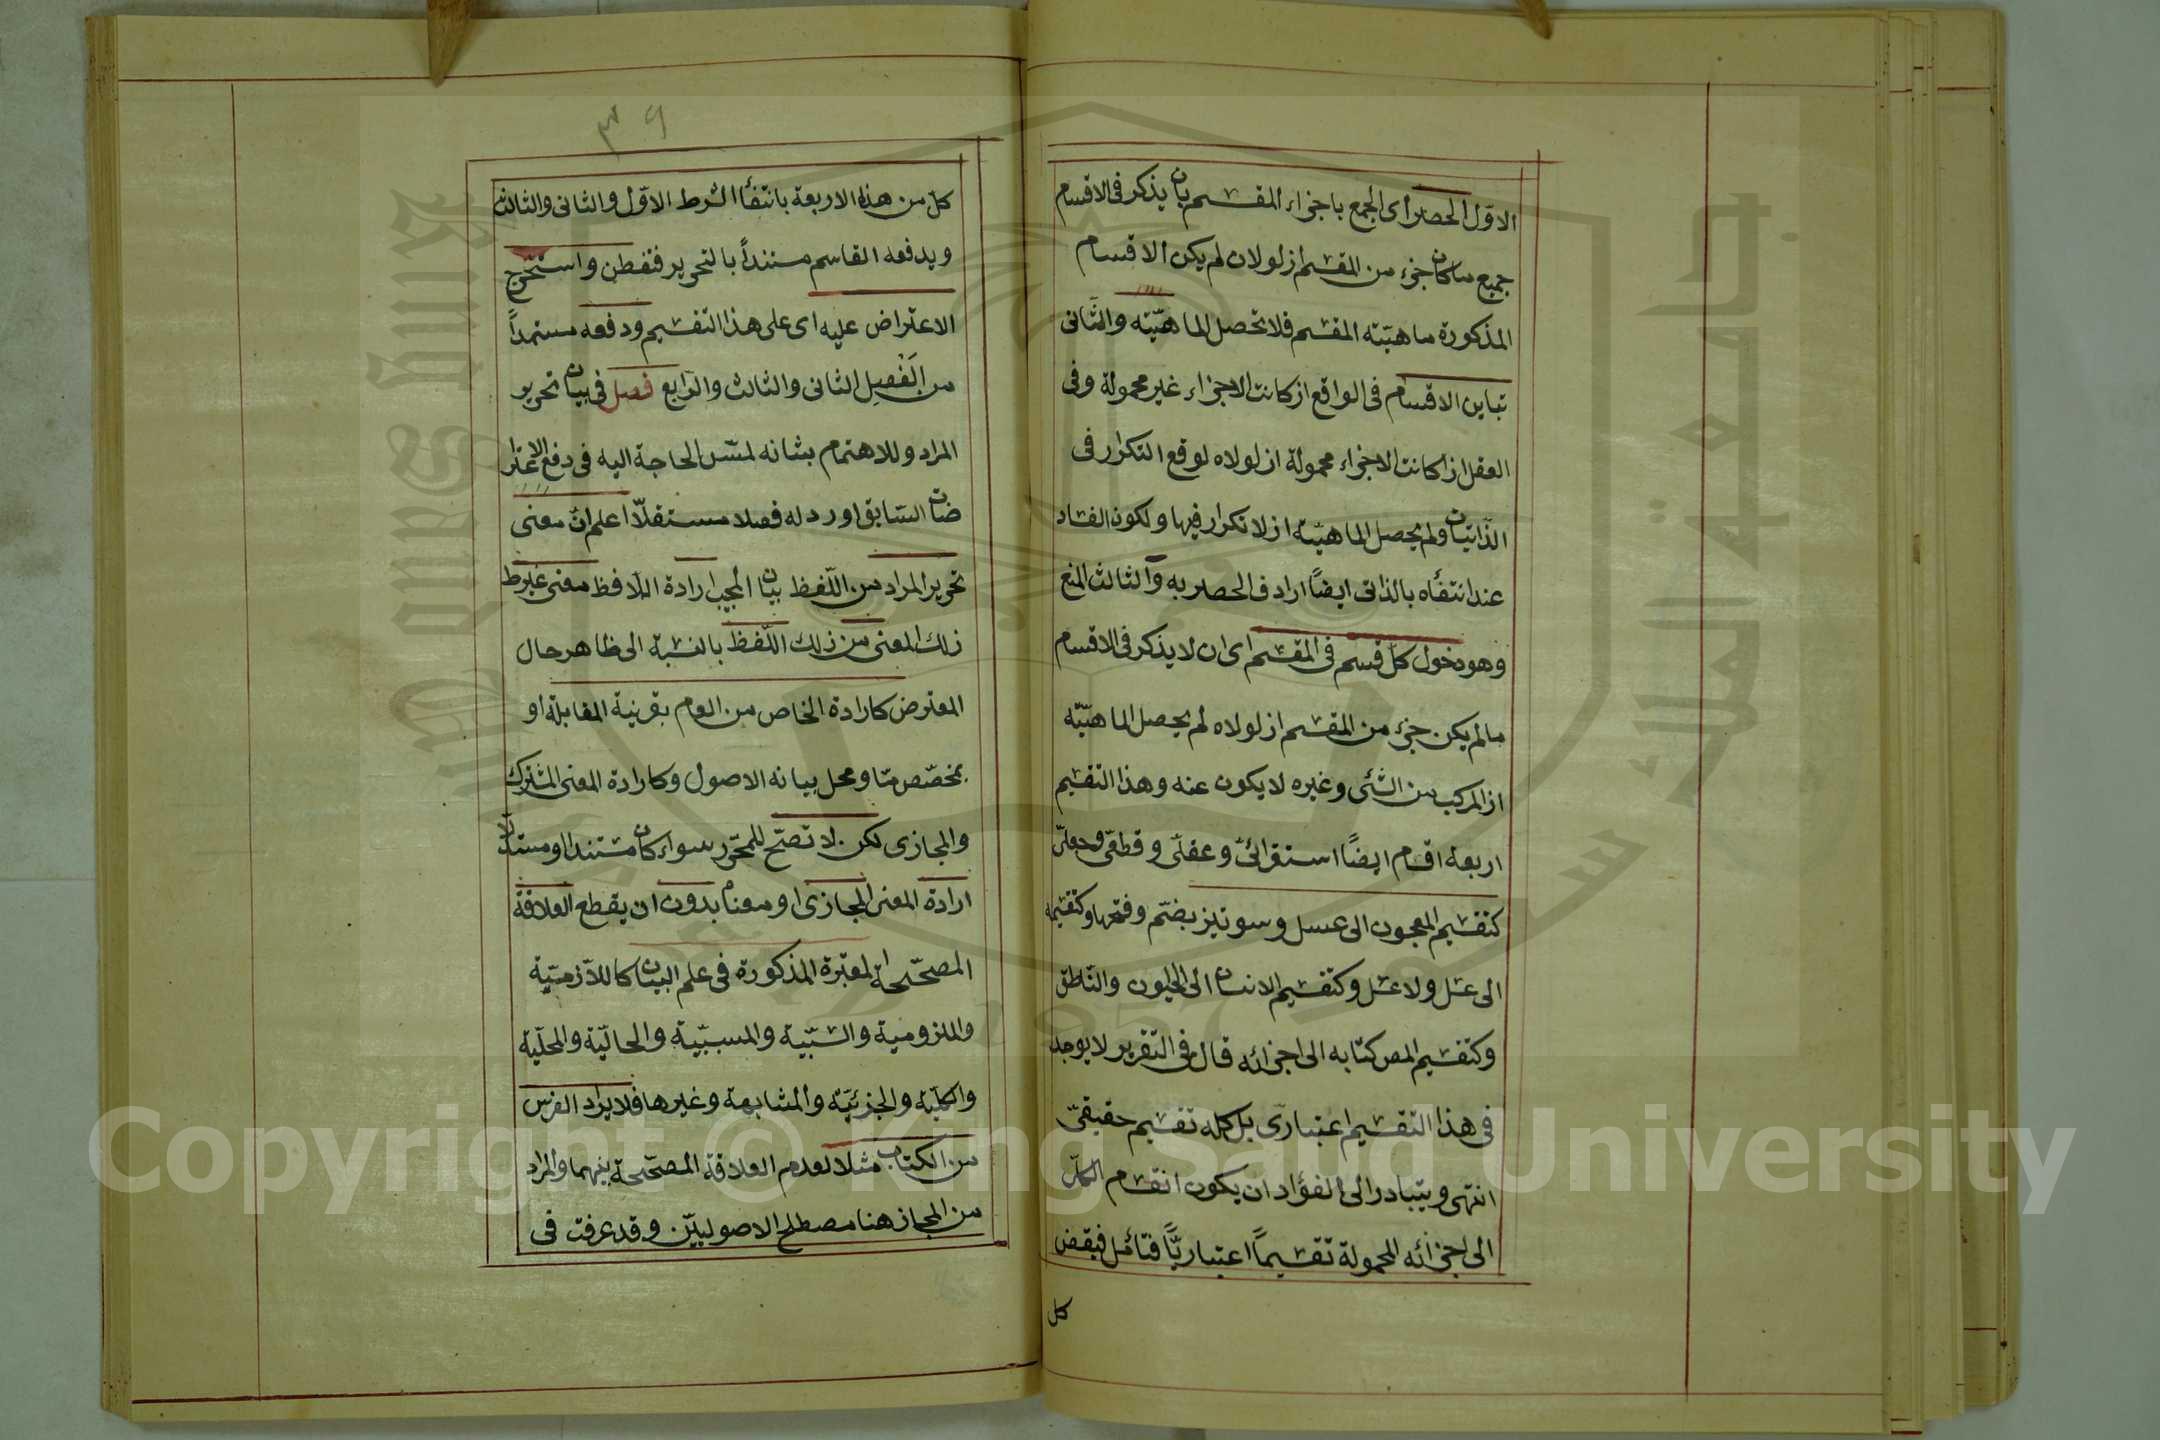 الاوّل الحصر أى الجمع باجزاء المقسم بان يذكر فى الاقسام
جميع ما كان جزء من المقسم اذ لولان لم يكن الاقسام
المذكورة ماهيّته المقسم فلا تحصل الماهيّته والثانى
تباين الاقسام فى الواقع اذ كانت الاجزاء غير محمولة وفى
العقل اذا كانت الاجزاء محمولة اذ لولاه لوقع التكرار فى
الذّاتيّات ولم يحصل الماهيّة اذ لا تكرار فيها ولكون الفساد
عند انتفأه بالذاتى ايضًا اراد ف الحصر به والثالث المنع
وهو دخول كلّ قسم فى المقسم اى ان لا يذكر فى الاقسام
مالم يكن جزء من المقسم اذ لولاه لم يحصل الماهيّته
اذ المركب من الشئ وغيره لا يكون عنه وهذا التقسيم
اربعة اقسام ايضًا استقرائىّ وعقلىّ وقطعىّ وجعلىّ
كتقسيم المعجون الى عسل وسونيز بضمّ وفتحها وكتقسيمه
الى عسل ولا عسل وكتقسيم الانسان الى الحيوان والنّاطق
وكتقسيم المص كتابه الى اجزائه قال فى التقرير لا يوجد
فى هذا التقسيم اعتبارى بل كله تقسيم حقيقىّ
انتهى ويتبادر الى الفؤاد ان يكون انقسام الكلّ
الى اجزائه المحمولة تقسيمًا اعتباريًّا فتأمّل فينقض
كل
٣٩
كلّ من هذه الاربعة بانتفأ الشرط الاوّل والثانى والثالث
ويدفعه القاسم مستنداً بالتحرير فتفطن واستخرج
الاعتراض عليه اى على هذا التقسيم ودفعه مستمداً
من الفَصِيل الثانى والثالث والرّابع فصل فى بيان تحرير
المراد وللاهتمام بشانه لمسّ الحاجة اليه فى دفع الاعترا
ضات السّابق اورد له فصلا مستقلّا اعلم انّ معنى
تحرير المراد من اللّفظ بيان المجيب ارادة اللّافظ معنى غير ظ
ذلك المعنى من ذلك اللّفظ بالنسبة الى ظاهر حال
المعترض كارادة الخاص من العام بقرنية المقابلة او
بمخصّص مّا ومحل بيانه الاصول وكارادة المعنى المشترك
والمجازى لكن لا تصحّ للمحّرر سواء كان مستندا او مستدلّا
ارادة المعنى المجازى او معناه بدون ان يقطع العلاقة
المصحّحة المعتبرة المذكورة فى علم البيان كاللاّزميّة
والملزومية والسّببيّة والمسببّية والحاليّة والمحلّية
والكليّة والجزئيّة والمشابهة وغيرها فلا يراد الفرس
من الكتاب مثلا لعدم العلاقة المصحّحة بينهما والمراد
من المجاز هنا مصطلح الاصولييّن وقد عرفت فى
Copyright © King Saud University
جامعة الملك سعود
King Saud University
1957